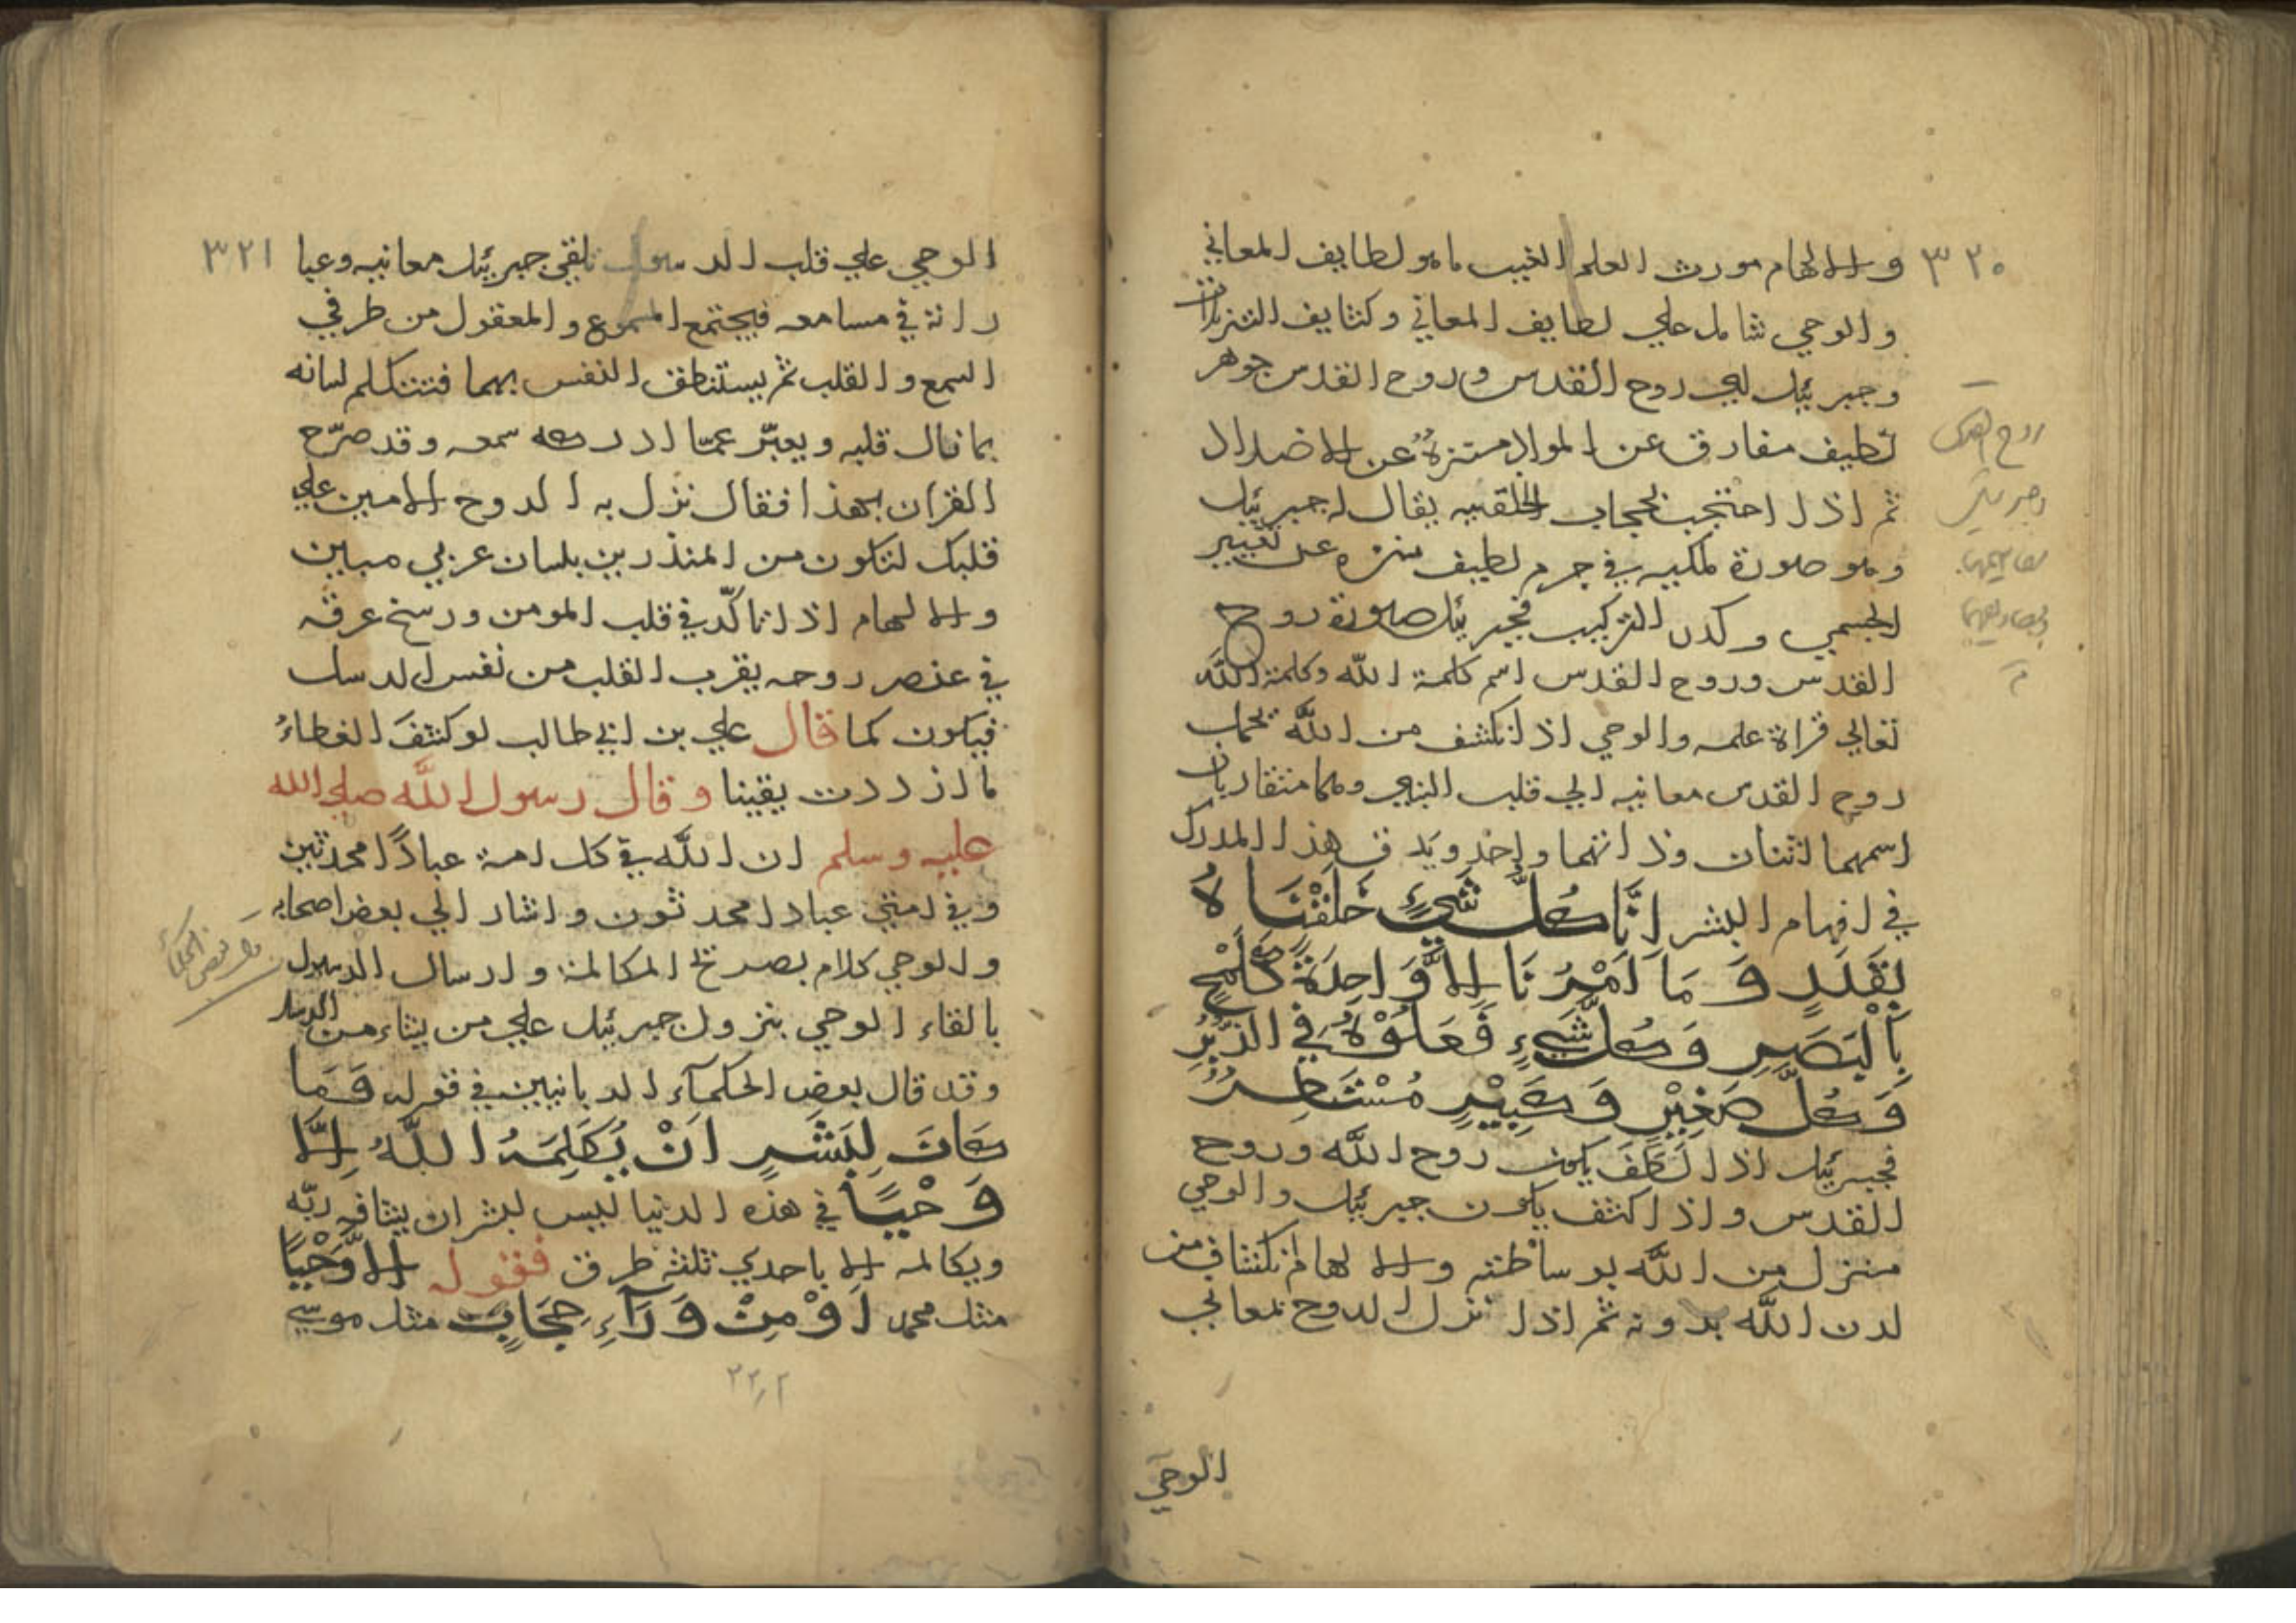 ٣٢٠
والالهام مورث العلم الغيب ما هو لطايف المعاني
والوحي شامل علي لطايف المعاني وكثايف التنزيلات
وجبرئيل لهي روح القدس وروح القدس جوهر
لطيف مفارق عن المواد منزه عن الاضداد
ثم اذا احتجب بحجاب الخلقيه يقال له جبرئيل
وهو صورة ملكيه في جرم لطيف منزه عن تغيير
الجسمي وكدر التركيب فجبرئيل صورة روح
القدس وروح القدس اسم كلمة الله وكلمة الله
تعالي قراة علمه والوحي اذا نكشف من الله بحجاب
روح القدس معانيه الي قلب النبي وهما متقاربان
اسمهما اثنان وذاتهما واحد ويدق هذا المدرك
في افهام البشر اِنَّا كُلَّ شَيْءٍ خَلَقْنَاهُ
بِقَدَرٍ وَمَا اَمْرُنَا اِلَّا وَاحِدَةٌ كَلَمْحٍ
بِالْبَصَرِ وَكُلُّ شَيْءٍ فَعَلُوْهُ فِي الزُّبُرِ
وَكُلُّ صَغِيْرٍ وَكَبِيْرٍ مُسْتَطَرٌ
فجبرئيل اذا لَطُفَ يكون روح الله وروح
القدس واذا كثف يكون جبرئيل والوحي
منزل من الله بوساطته والالهام انكشاف من
لدن الله بدونه ثم اذا نزل الروح بمعاني
الوحي
روح القدس
وجبرئيل
٣٢١
الوحي علي قلب الرسول تلقي جبرئيل معانيه وعبا
راته في مسامعه فيجتمع المسموع والمعقول من طرفي
السمع والقلب ثم يستنطق النفس بهما فتتكلم لسانه
بما نال قلبه ويعبّر عمّا ادركه سمعه وقد صرّح
القران بهذا فقال نزل به الروح الامين علي
قلبك لتكون من المنذرين بلسان عربي مبين
والالهام اذا تاكّد في قلب المومن ورسخ عرقه
في عنصر روحه يقرب القلب من نفس الرسل
فيكون كما قال علي بن ابي طالب لو كشفَ الغطاءُ
ما ازددت يقينا وقال رسول الله صلي الله
عليه وسلم ان الله في كل امة عباداً محدثين
وفي امتي عبادا محدثون واشار الي بعض اصحابه
والوحي كلام بصريح المكالمة وارسال الرسول
بالقاء الوحي بنزول جبرئيل علي من يشاء من الرسل
وقد قال بعض الحكمآء الربانيين في قوله وَمَا
كَانَ لِبَشَرٍ اَنْ يُكَلِّمَهُ اللّٰهُ اِلَّا
وَحْيًا في هذه الدنيا ليس لبشر ان يشافه ربّه
ويكالمه الا باحدي ثلثة طرق فقوله اِلَّا وَحْيًا
مثل محمد اَوْ مِنْ وَرَآءِ حِجَابٍ مثل موسي